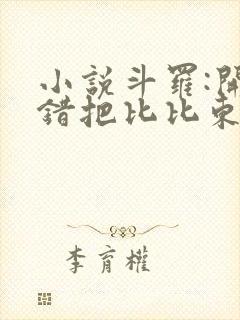 小說斗羅:開
錯把比比東
李育權